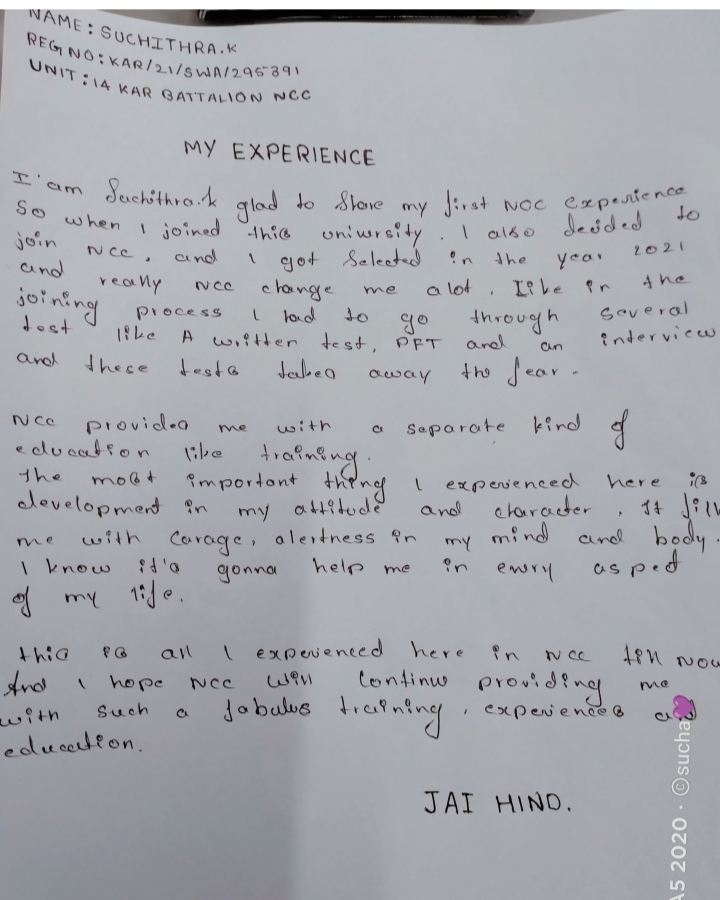 NAME: SUCHITHRA.K
REG NO: KAR/21/SWA/295391
UNIT: 14 KAR BATTALION NCC
MY EXPERIENCE
I'am Suchithra.k glad to share my first NCC experience
So when I joined this university. I also decided to
join NCC, and I got Selected in the year 2021
and really NCC change me alot. Like in the
joining process I had to go through several
test like A written test, PFT and an interview
and these tests takes away the fear.
NCC provides me with a separate kind of
education like training.
The most important thing I experienced here is
development in my attitude and character. It fill
me with Carage, alertness in my mind and body.
I know it's gonna help me in every asped
of my life.
this is all I experienced here in NCC till now
And I hope NCC will Continue providing me
with such a fabulus training, experiences
education.
JAI HIND.
A5 2020 · ©sucha